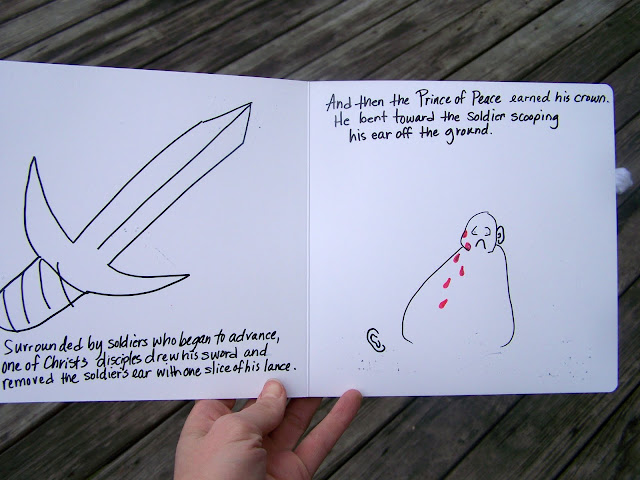 Surrounded by soldiers who began to advance,
one of Christ's disciples drew his sword and
removed the soldier's ear with one slice of his lance.
And then the Prince of Peace earned his crown.
He bent toward the soldier scooping
his ear off the ground.